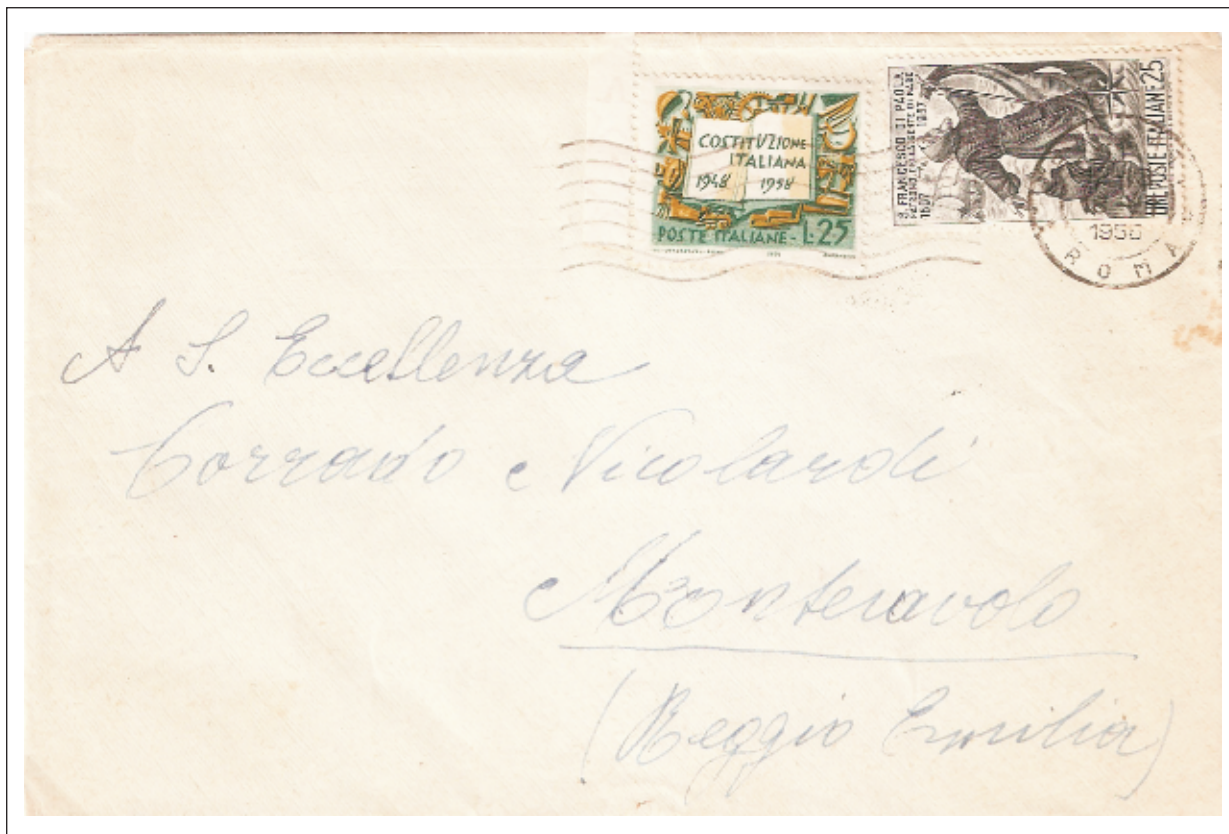 COSTITUZIONE
ITALIANA
1948 1958
POSTE ITALIANE - L.25
S. FRANCESCO DI PAOLA
PATRONO DELLA GENTE DI MARE
1507 1957
LIRE POSTE ITALIANE 25
ROMA
A S. Eccellenza
Corrado Nicolardi
Monteravolo
(Reggio Emilia)